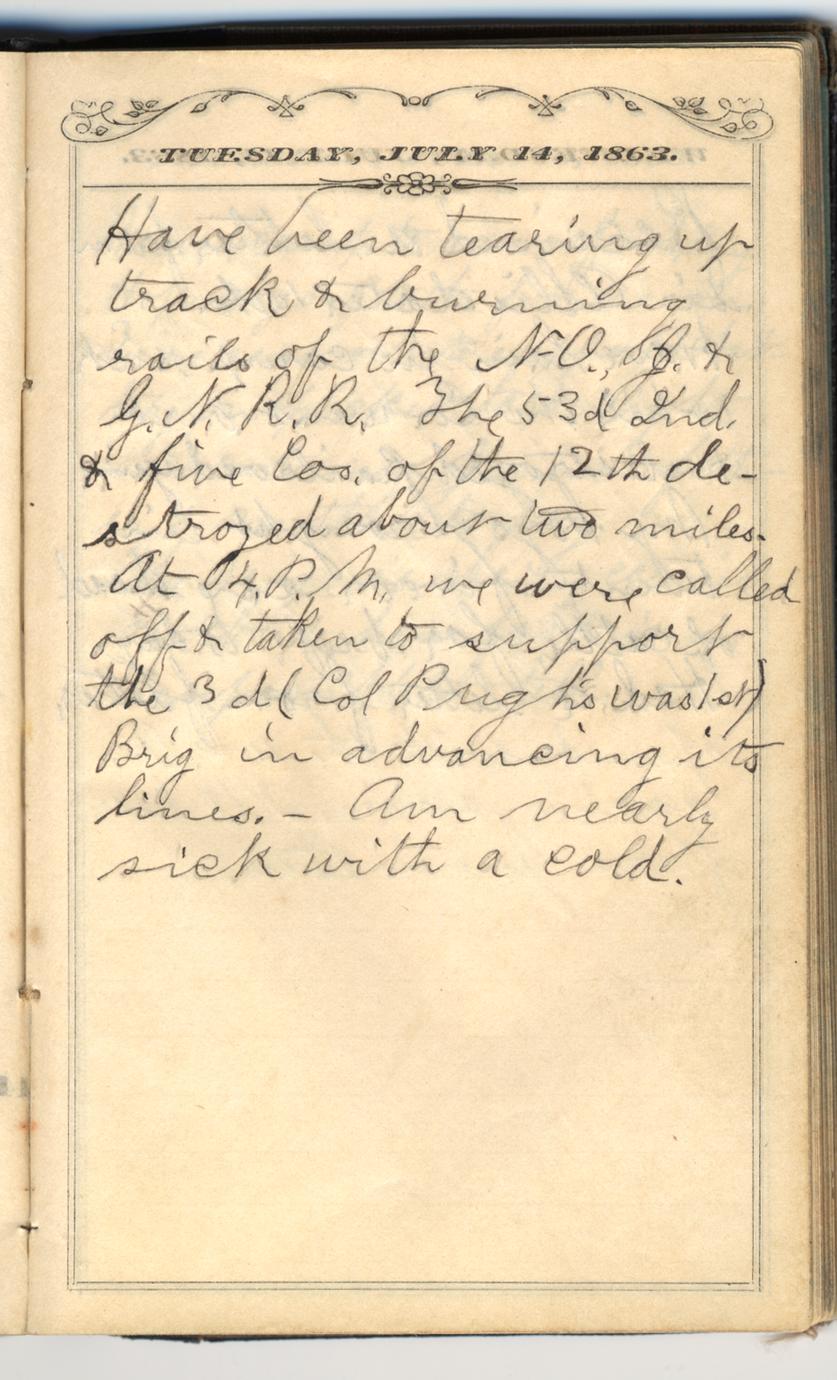 TUESDAY, JULY 14, 1863.
Have been tearing up
track & burning
rails of the N.O., J. &
G. N. R. R. The 53d Ind.
& five Cos. of the 12th de-
stroyed about two miles.
At 4 P. M. we were called
off & taken to support
the 3d (Col Pugh's was 1st)
Brig in advancing its
lines. - Am nearly
sick with a cold.